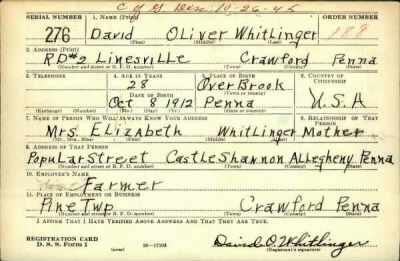 C of G Disc 10-26-45
SERIAL NUMBER 1. NAME (Print) ORDER NUMBER
276 David Oliver Whitlinger 188
(First) (Middle) (Last)
2. ADDRESS (Print)
RD#2 Linesville Crawford Penna
(Number and street or R. F. D. number) (Town) (County) (State)
3. TELEPHONE 4. AGE IN YEARS 5. PLACE OF BIRTH 6. COUNTRY OF CITIZENSHIP
28 OverBrook
DATE OF BIRTH (Town or county)
Oct 8 1912 Penna U.S.A
(Exchange) (No.) (Mo.) (Day) (Yr.) (State or country)
7. NAME OF PERSON WHO WILL ALWAYS KNOW YOUR ADDRESS 8. RELATIONSHIP OF THAT PERSON
Mrs. Elizabeth Whitlinger Mother
(Mr., Mrs., Miss) (First) (Middle) (Last)
9. ADDRESS OF THAT PERSON
Popular Street Castle Shannon Allegheny Penna
(Number and street or R. F. D. number) (Town) (County) (State)
10. EMPLOYER'S NAME
Farmer
11. PLACE OF EMPLOYMENT OR BUSINESS
Pine Twp Crawford Penna
(Number and street or R. F. D. number) (Town) (County) (State)
I AFFIRM THAT I HAVE VERIFIED ABOVE ANSWERS AND THAT THEY ARE TRUE.
REGISTRATION CARD
D. S. S. Form 1 (over) David O. Whitlinger
(Registrant's signature)